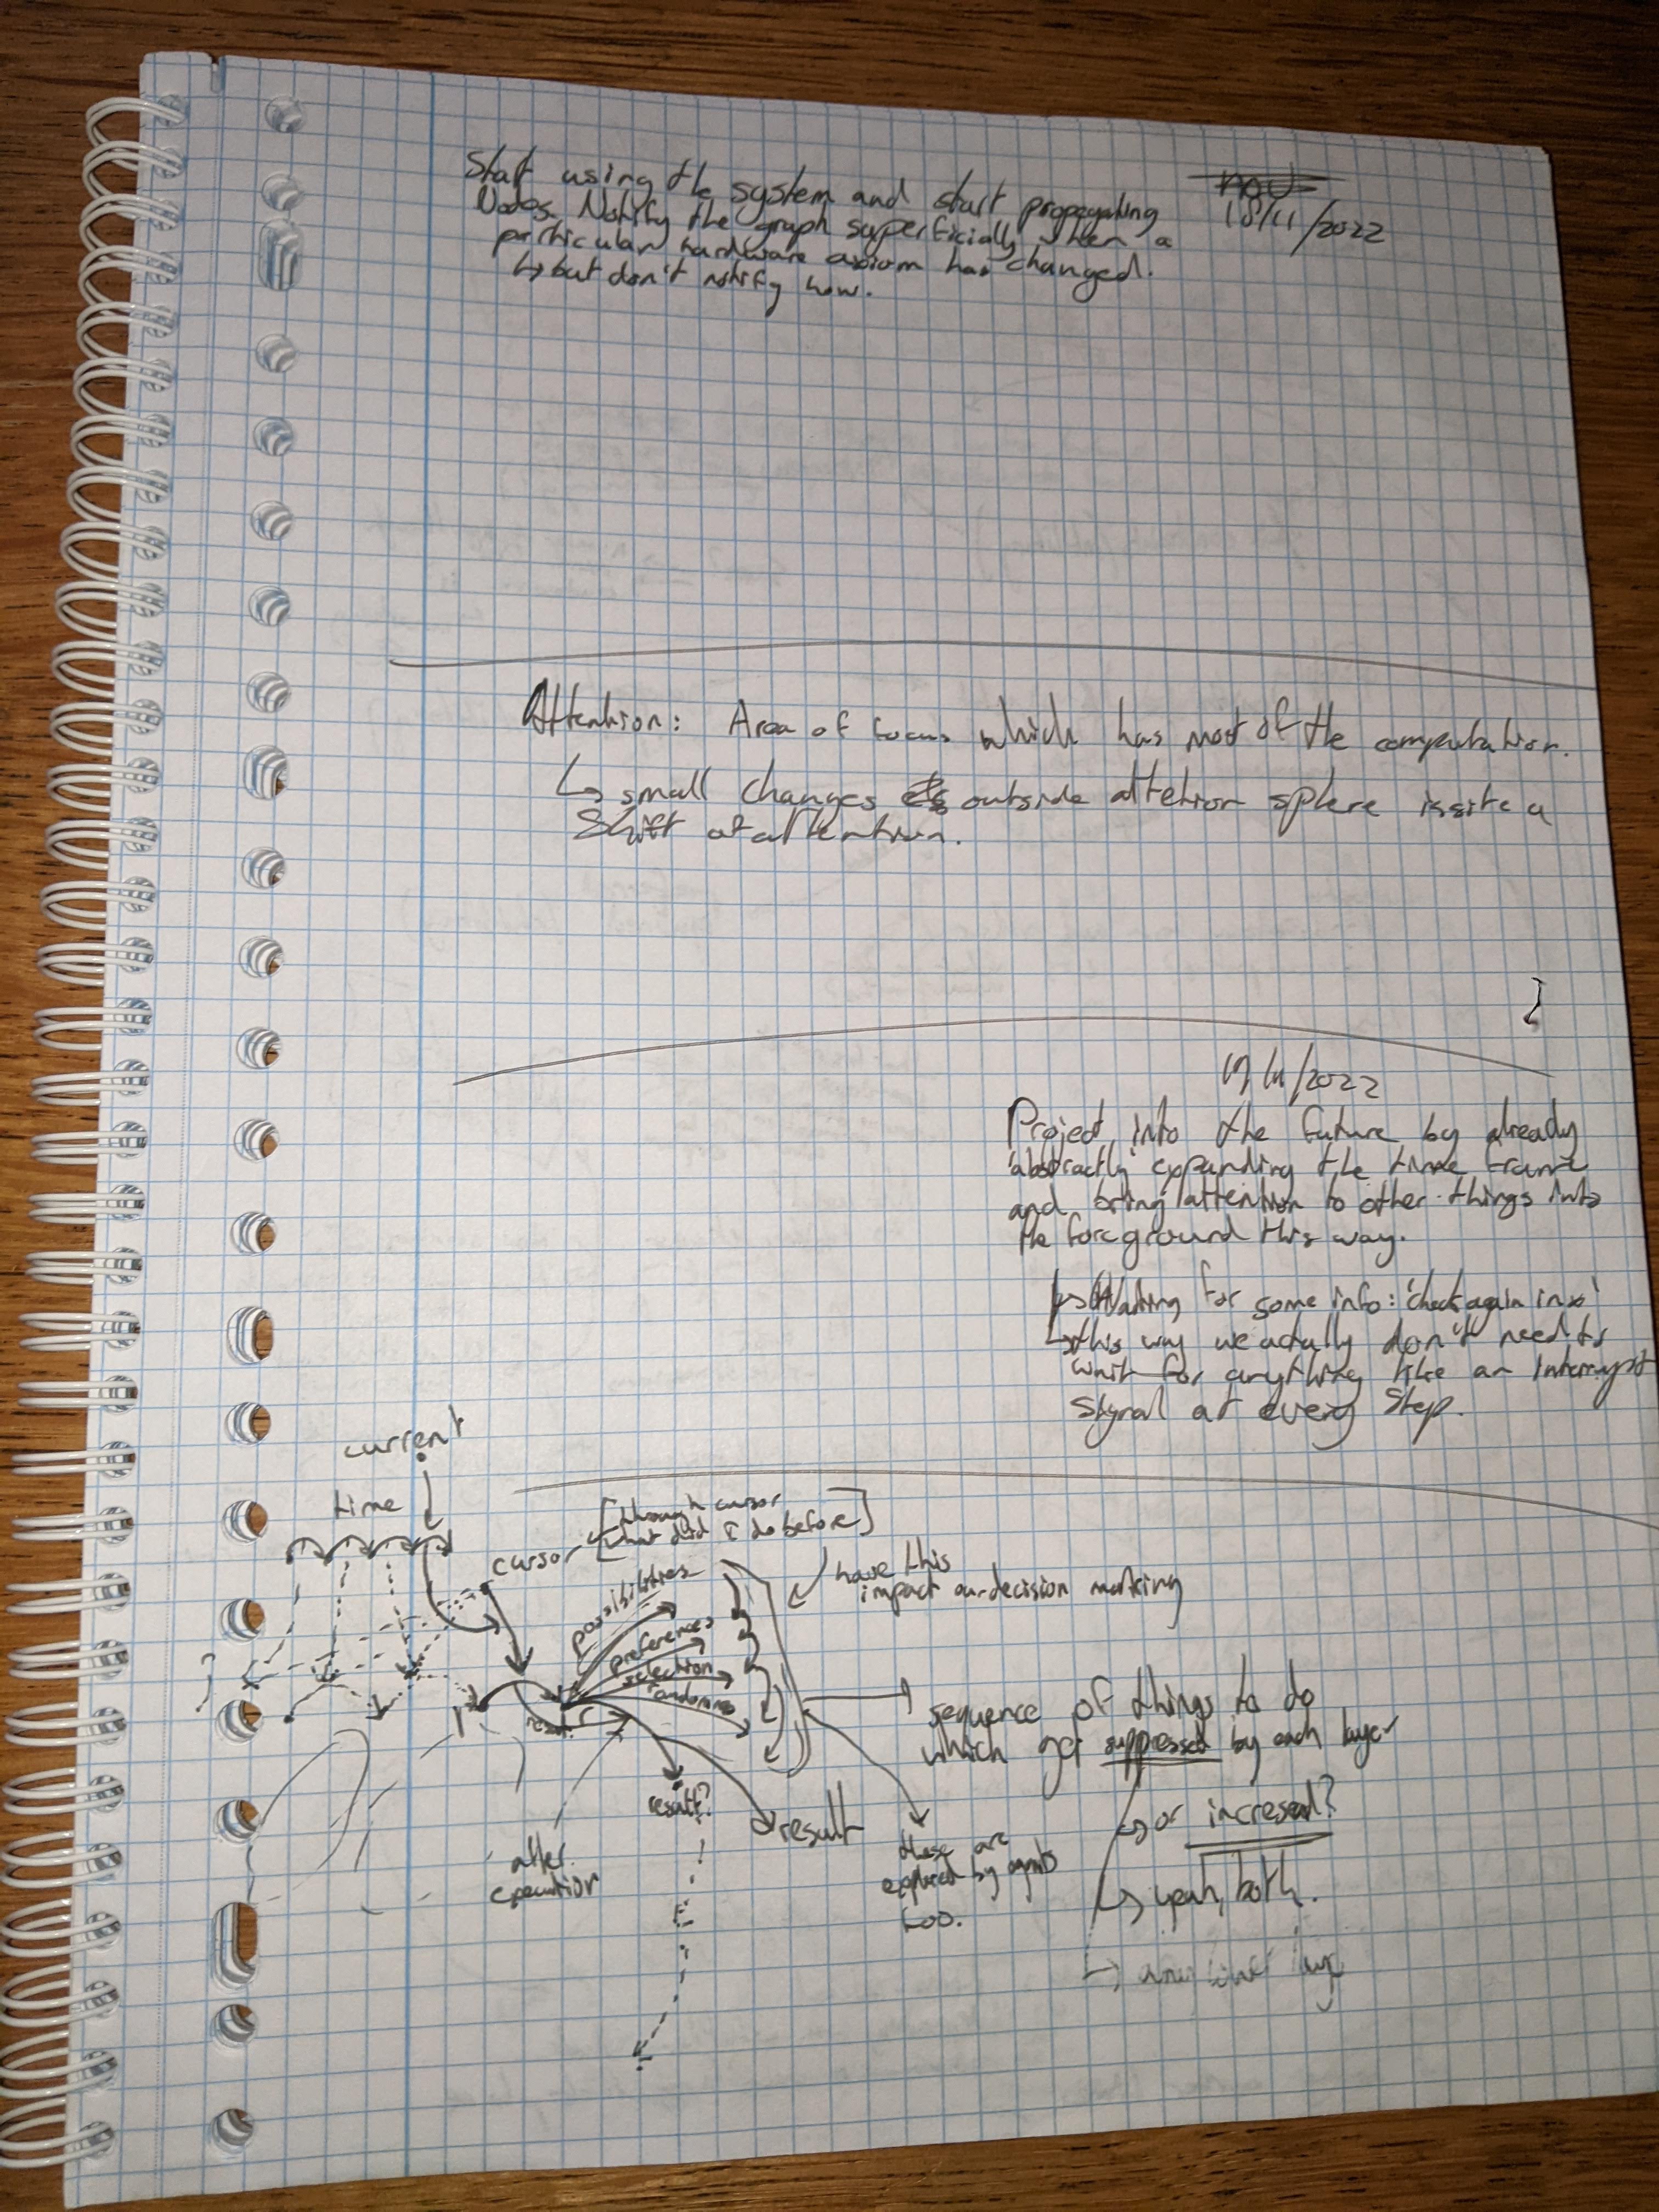 18/11/2022
Start using the system and start propagating
Nodes. Notify the graph superficially when a
particular hardware axiom has changed.
↳ but don't notify how.
Attention: Area of focus which has most of the computation.
↳ small changes outside attetion sphere issite a
Shift of attention.
19/11/2022
Project into the future by already
'abstractly' expanding the time frame
and bring attention to other things into
the foreground this way.
↳ Waiting for some info: 'check again in x'
↳ this way we actully don't need to
wait for anything like an Interrupt
Signal at every step.
current
time
cursor
[through cursor
what did I do before]
possibilities
preferences
selection
randomness
have this
impact our decision making
result
result?
result
after
execution
sequence of things to do
which get suppressed by each layer
↳ or incresed?
↳ yeah, both.
these are
explored by agents
too.